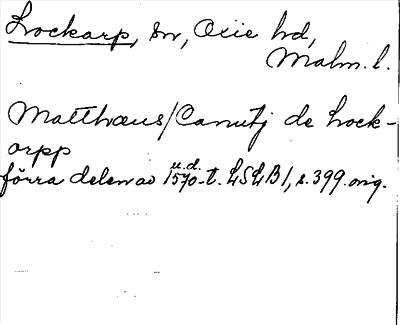 Lockarp, sn, Oxie hd,
Malm. l.
Matthæus/Canutj de Lock-
orpp
u.d.
förra delen av 1570-t. LSLB1, s. 399. orig.